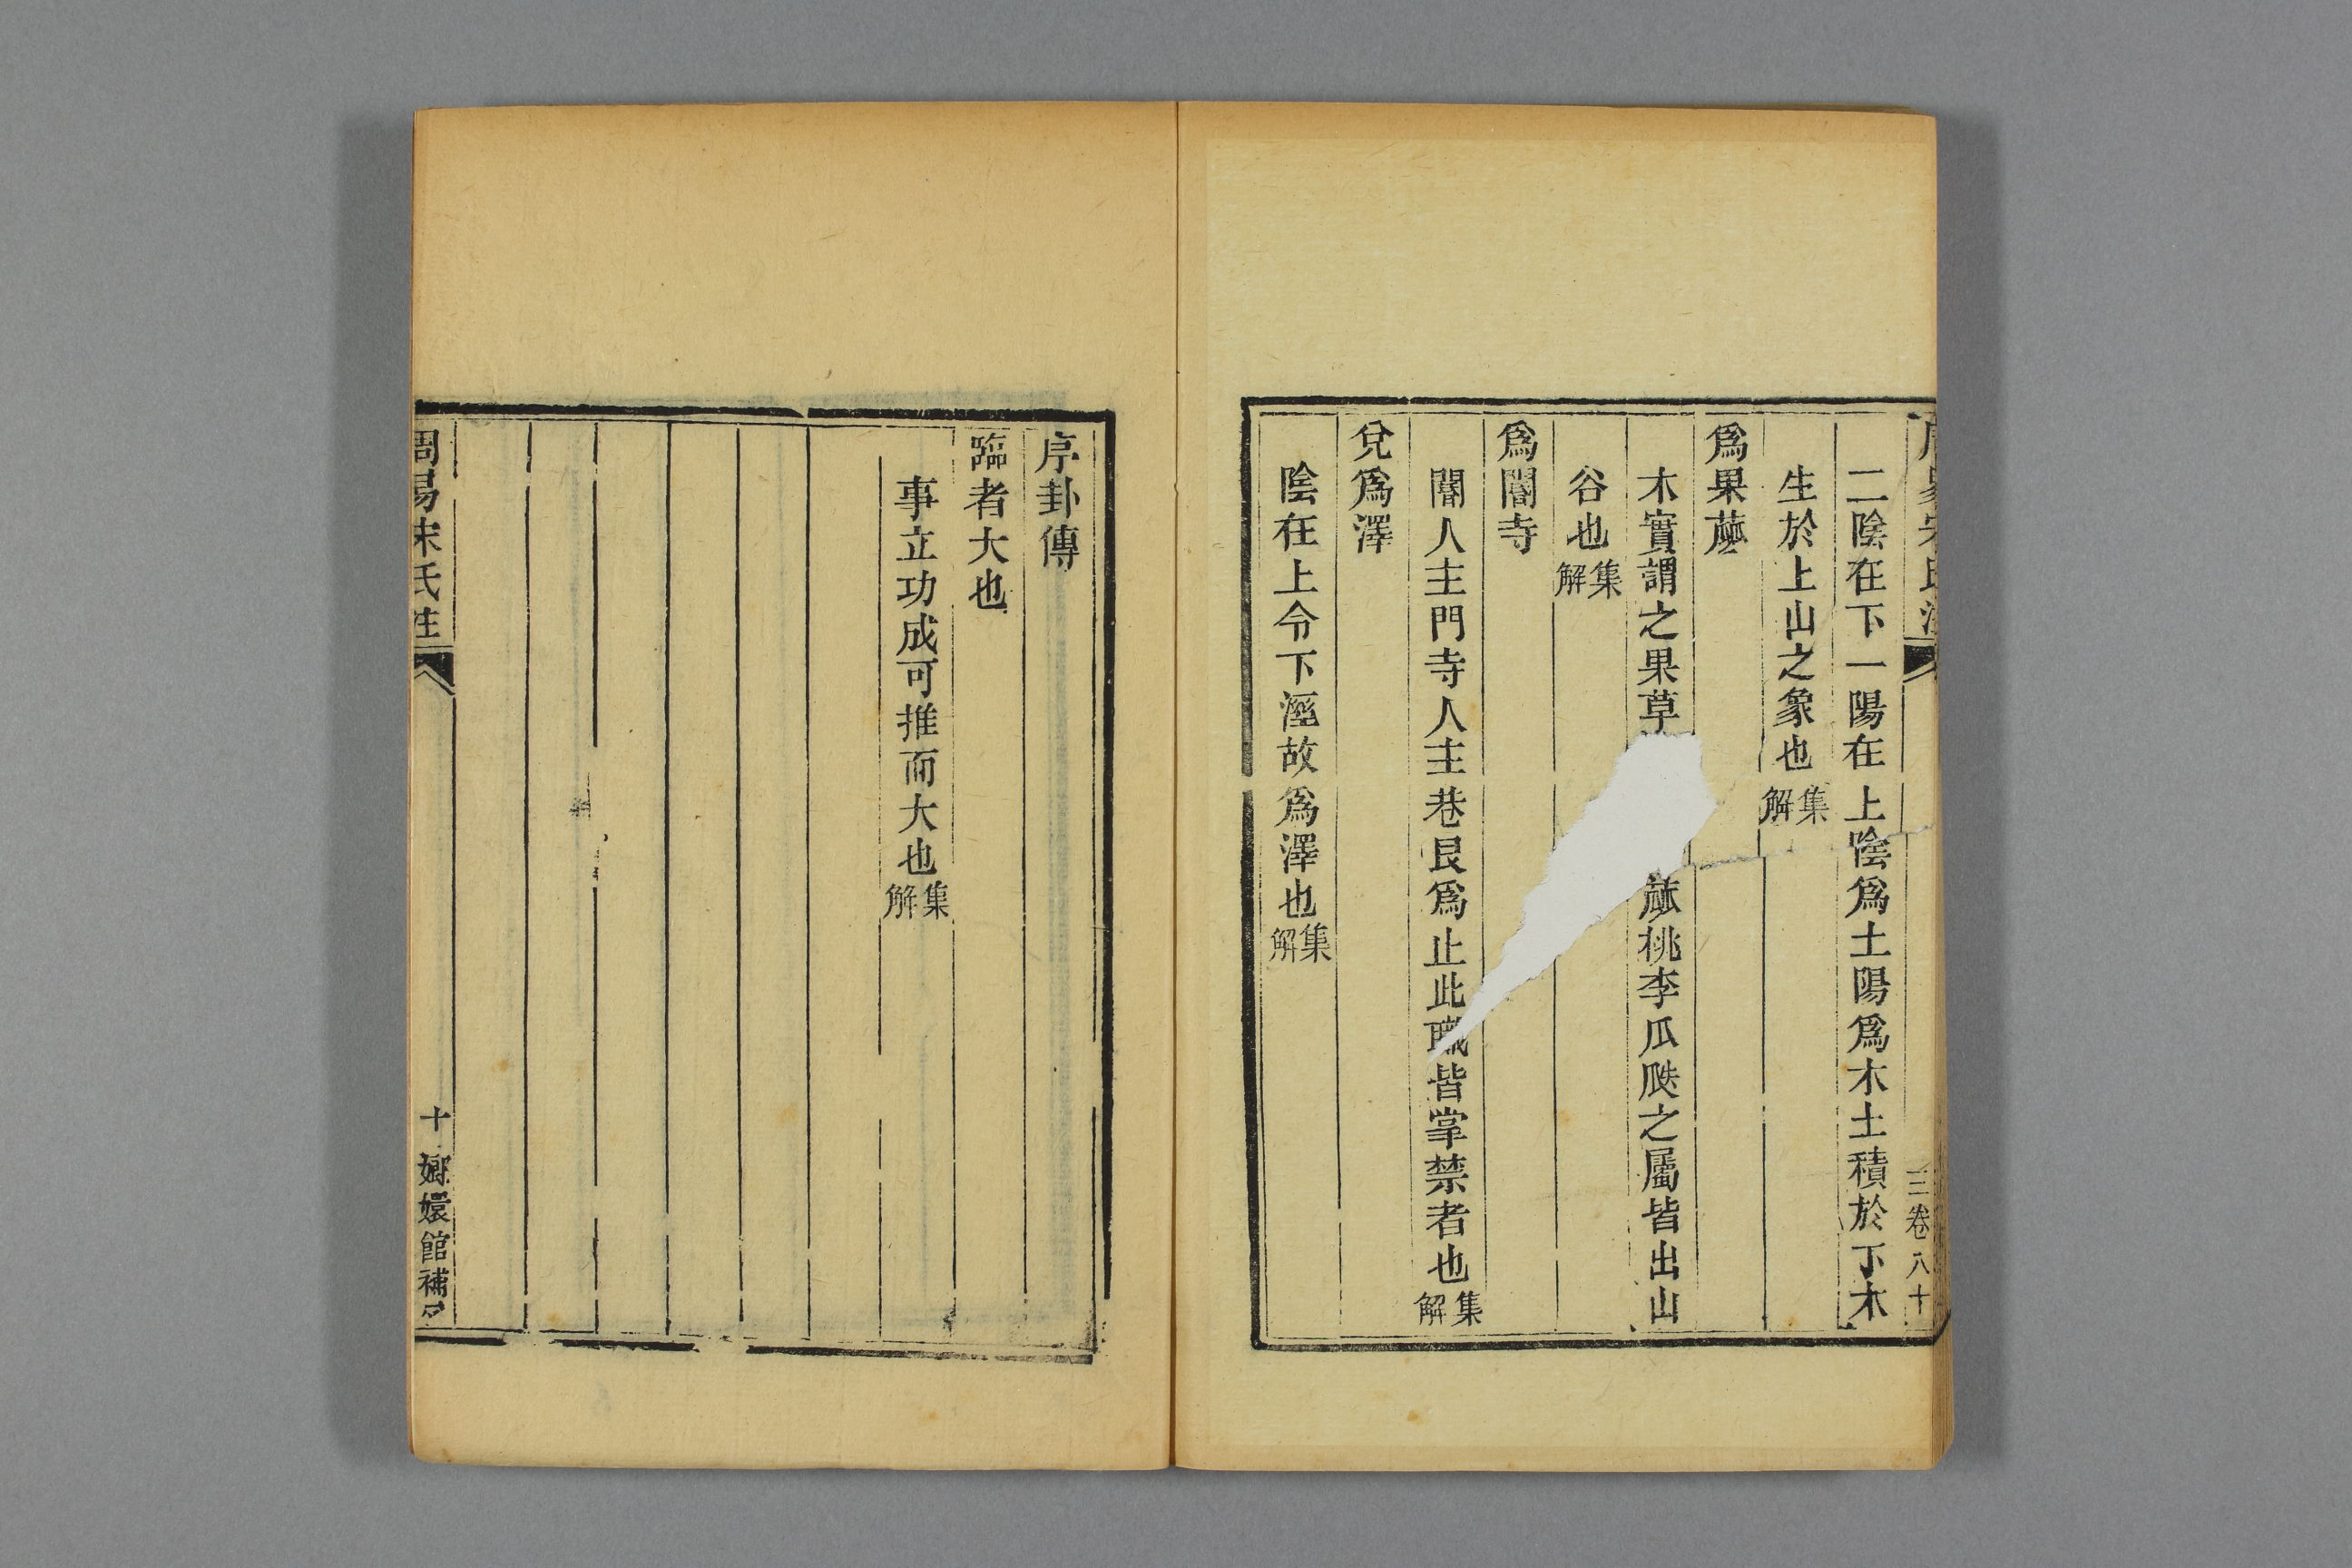 二陰在下一陽在上陰爲土陽爲木土積於下木
生於上山之象也集解
爲果蓏
木實謂之果草蓏桃李瓜瓞之屬皆出山
谷也集解
爲閽寺
閽人主門寺人主巷艮爲止此職皆掌禁者也集解
兌爲澤
陰在上令下溼故爲澤也集解
三卷八十
序卦傳
臨者大也
事立功成可推而大也集解
周易宋氏注
十
嫏嬛館補